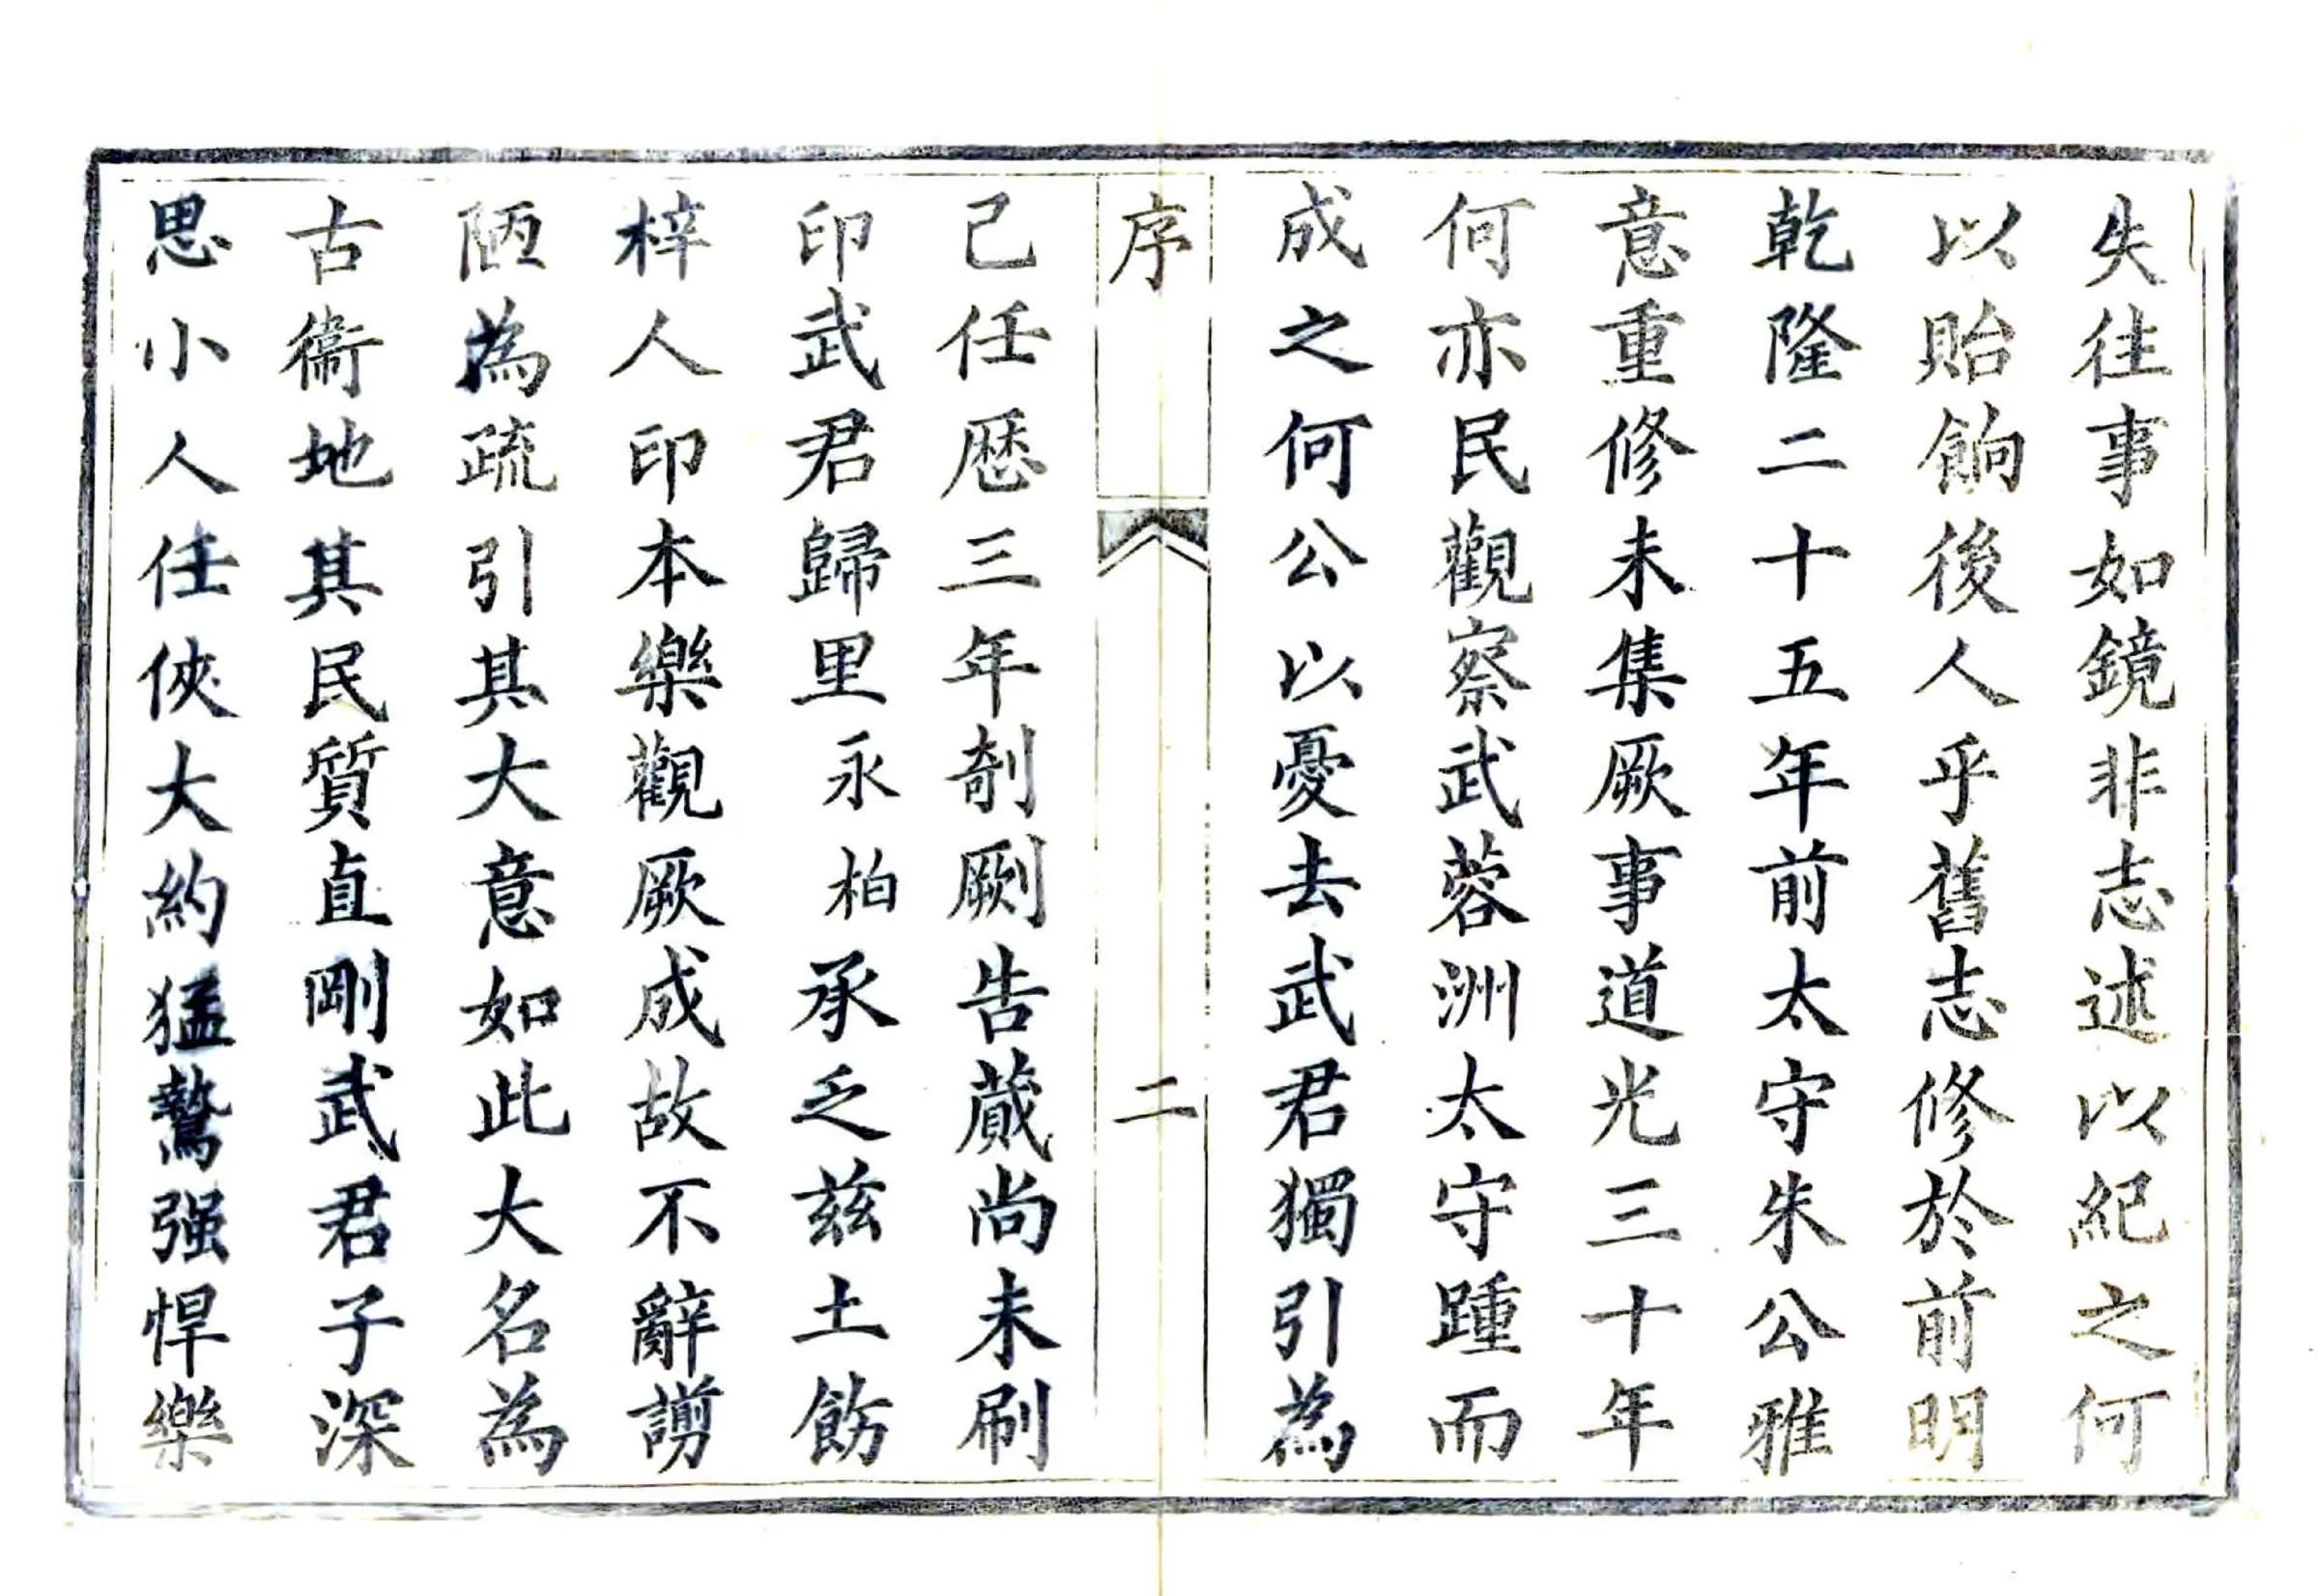 失往事如鏡非志述以紀之何
以貽餉後人乎舊志修於前明
乾隆二十五年前太守朱公雅
意重修未集厥事道光三十年
何亦民觀察武蓉洲太守踵而
成之何公以憂去武君獨引為
序 二
己任厯三年剞劂告蕆尚未刷
印武君歸里永柏承乏兹土飭
梓人印本樂觀厥成故不辭謭
陋為疏引其大意如此大名為
古衞地其民質直剛武君子深
思小人任俠大約猛驁强悍樂